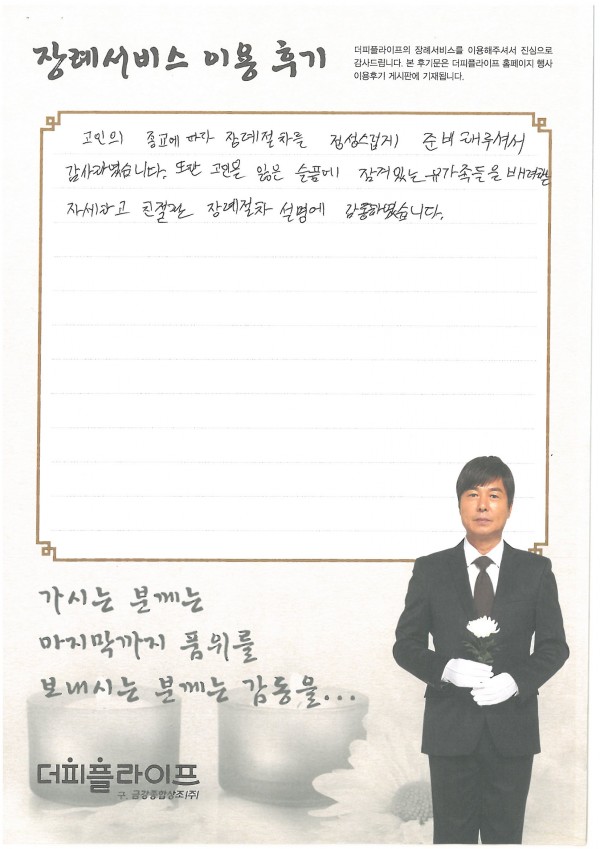 장례서비스 이용 후기
더피플라이프의 장례서비스를 이용해주셔서 진심으로
감사드립니다. 본 후기문은 더피플라이프 홈페이지 행사
이용후기 게시판에 기재됩니다.
고인의 종교에 따라 장례절차를 정성스럽게 준비해주셔서
감사하였습니다. 또한 고인을 잃은 슬픔에 잠겨있는 유가족들을 배려한
자세하고 친절한 장례절차 설명에 감동하였습니다.
가시는 분께는
마지막까지 품위를
보내시는 분께는 감동을...
더피플라이프
구. 금강종합상조(주)